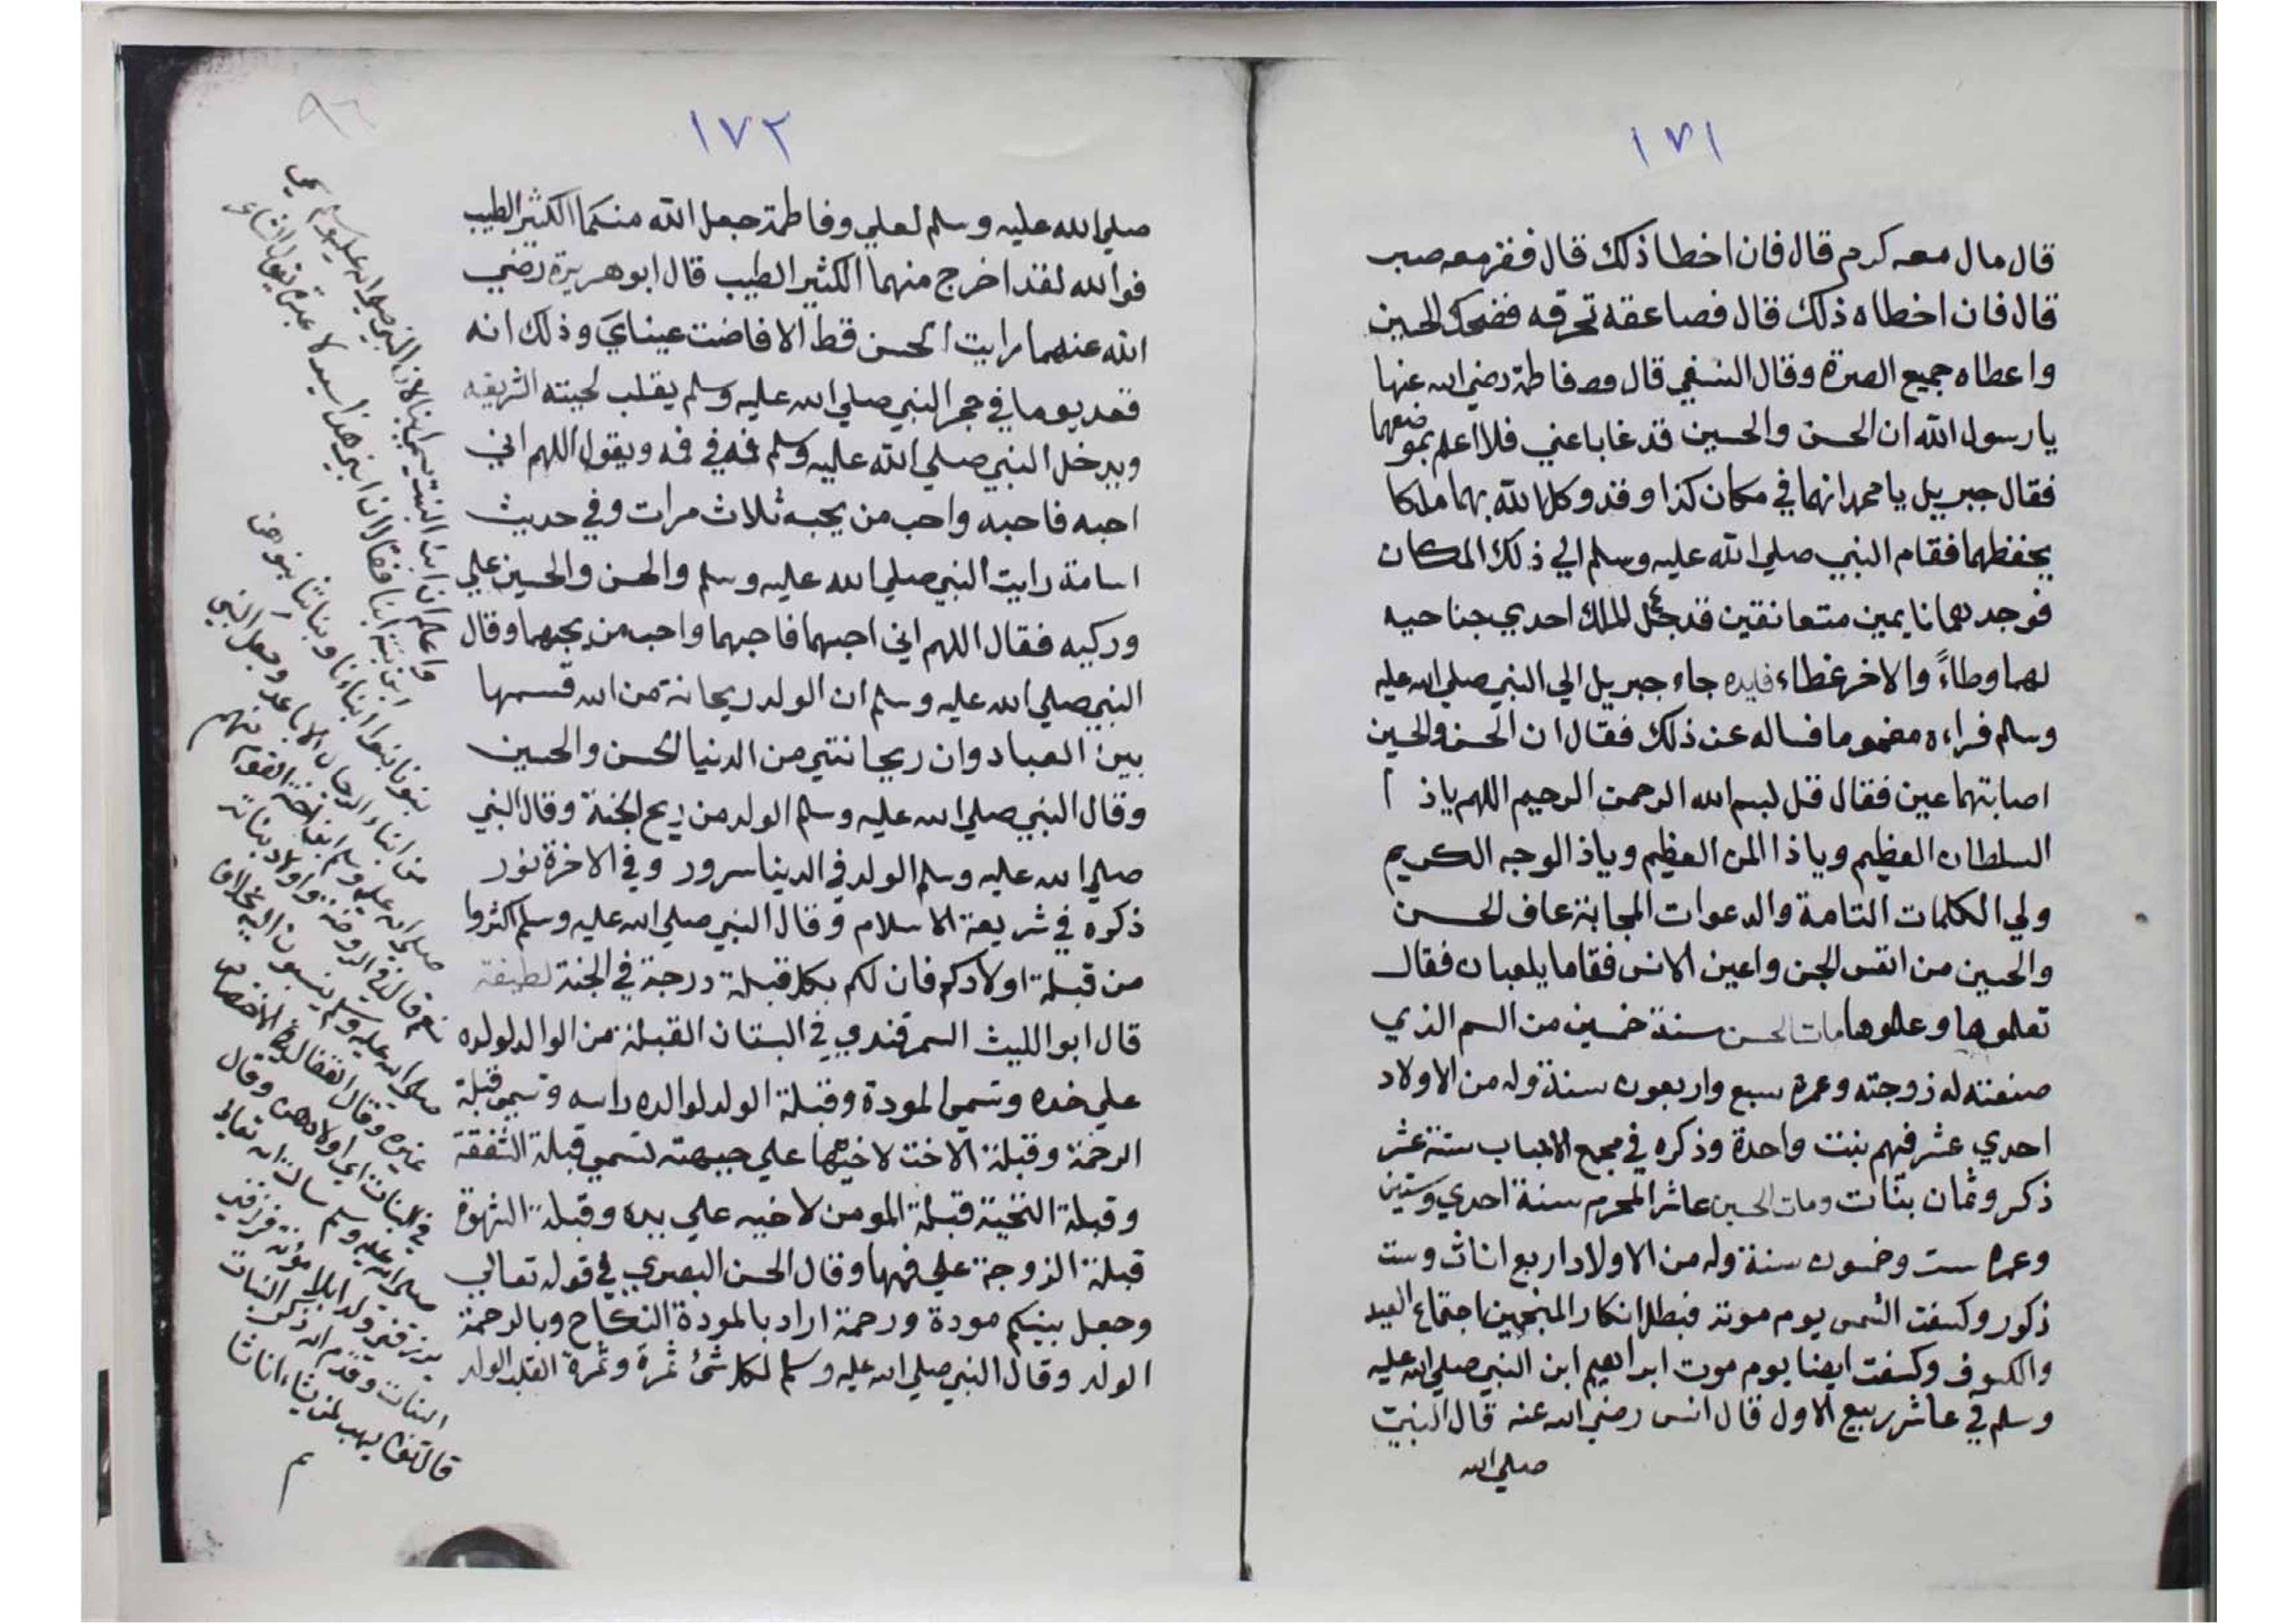 ١٧١
قال مال معه كرم قال فان اخطا ذلك قال ففقر معه صبر
قال فان اخطاه ذلك قال فصاعقة تحرقه فضحك الحسين
واعطاه جميع الصرة وقال النسفي قال وصد فاطمة رضي الله عنها
يا رسول الله ان الحسن والحسين قد غابا عني فلا اعلم بموضعهما
فقال جبريل يا محمد انهما في مكان كذا وقد وكل الله بهما ملكا
يحفظهما فقام النبي صلي الله عليه وسلم الي ذلك المكان
فوجدهما نايمين متعانقين قد جعل الملك احدي جناحيه
لهما وطاءً والاخر غطاء فايده جاء جبريل الي النبي صلي الله عليه
وسلم فراءه مغموما فساله عن ذلك فقال ان الحسن والحسين
اصابتهما عين فقال قل بسم الله الرحمن الرحيم اللهم ياذ ا
السلطان العظيم وياذا المن العظيم وياذ الوجه الكريم
ولي الكلمات التامة والدعوات المجابة عاف الحسن
والحسين من انفس الجن واعين الانس فقاما يلعبان فقال
تعلموها وعلموها مات الحسن سنة خمسين من السم الذي
صنعته له زوجته وعمره سبع واربعون سنة وله من الاولاد
احدي عشر فيهم بنت واحدة وذكره في مجمع الاحباب ستة عشر
ذكر وثمان بنات ومات الحسين عاشر المحرم سنة احدي وستين
وعمره ست وخمسون سنة وله من الاولاد اربع اناث وست
ذكور وكسفت الشمس يوم موته فبطل انكار المنجمين اجتماع العيد
والكسوف وكسفت ايضا يوم موت ابراهيم ابن النبي صلي الله عليه
وسلم في عاشر ربيع الاول قال انس رضي الله عنه قال النبي
صلي الله
١٧٢
صلي الله عليه وسلم لعلي وفاطمة جعل الله منكما الكثير الطيب
فوالله لقد اخرج منهما الكثير الطيب قال ابو هريرة رضي
الله عنه ما رايت الحسن قط الا فاضت عيناي وذلك انه
قعد يوما في حجر النبي صلي الله عليه وسلم يقلب لحيته الشريفه
ويدخل النبي صلي الله عليه وسلم فمه في فمه ويقول اللهم اني
احبه فاحبه واحب من يحبه ثلاث مرات وفي حديث
اسامة رايت النبي صلي الله عليه وسلم والحسن والحسين علي
وركيه فقال اللهم اني احبهما فاحبهما واحب من يحبهما وقال
النبي صلي الله عليه وسلم ان الولد ريحانة من الله قسمها
بين العباد وان ريحانتي من الدنيا الحسن والحسين
وقال النبي صلي الله عليه وسلم الولد من ريح الجنة وقال النبي
صلي الله عليه وسلم الولد في الدينا سرور وفي الاخرة نور
ذكره في شريعة الاسلام وقال النبي صلي الله عليه وسلم اكثروا
من قبلة اولادكم فان لكم بكل قبلة درجة في الجنة لطيفة
قال ابو الليث السمرقندي في البستان القبلة من الوالد لولده
علي خده وتسمي المودة وقبلة الولد لوالده راسه وتسمي قبلة
الرحمة وقبلة الاخت لاخيها علي جبهته تسمي قبلة الشفقة
وقبلة التحية قبلة المومن لاخيه علي يده وقبلة الشهوة
قبلة الزوجة علي فمها وقال الحسن البصري في قوله تعالي
وجعل بينكم مودة ورحمة اراد بالمودة النكاح وبالرحمة
الولد وقال النبي صلي الله عليه وسلم لكل شئ ثمرة وثمرة القلب الولد
واعلم ان ابن البنت يسمي ابنا لان النبي صلي الله عليه وسلم سمي
ابن بنته ابنا فقال ان ابني هذا سيد
بنونا بنوا ابناءنا وبناتنا بنوهن
من ابناء الرجال الاباعد وجعل النبي
صلي الله عليه وسلم ابن اخت القوم منهم
نعم قال في الروضة واولاد بناته
صلي الله عليه وسلم ينسبون اليه بخلاف
غيره وقال القفال
في البنات اي اولادهن وقال
صلي الله عليه وسلم سالت الله تعالي
يرزقني ولدا بلا مؤنة فرزقني
البنات وقدم الله ذكر البنات
قال تعالي يهب لمن يشاء اناثا
م